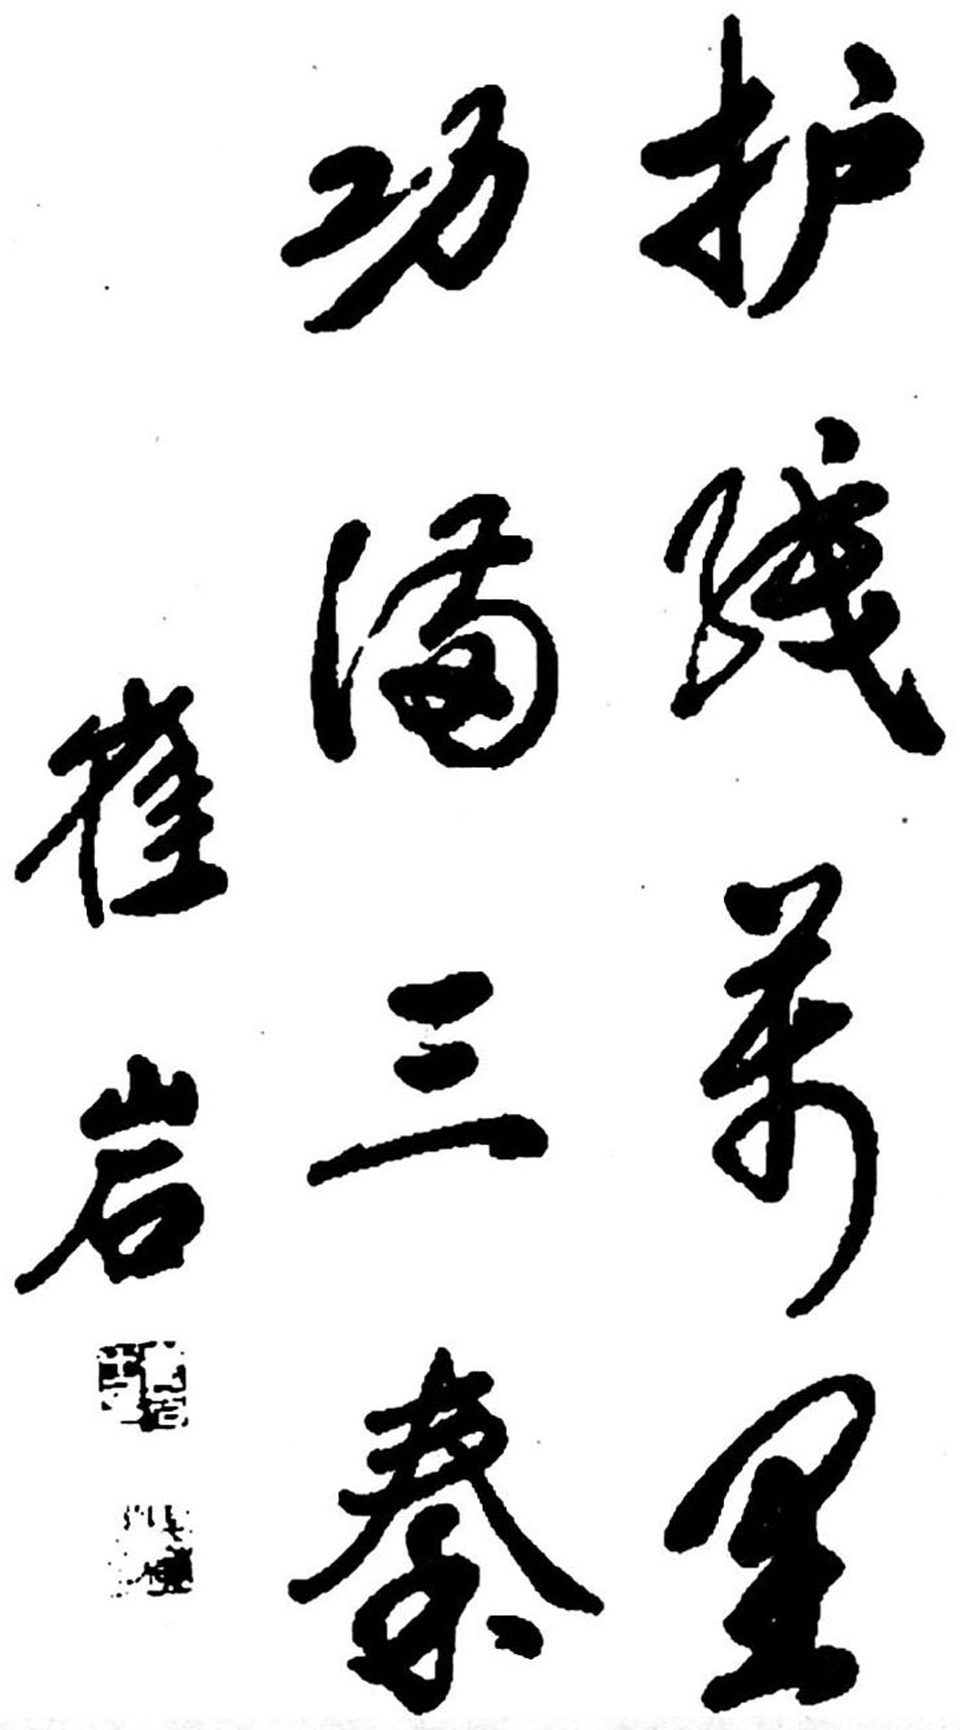 护线萬里
功满三秦
崔岩